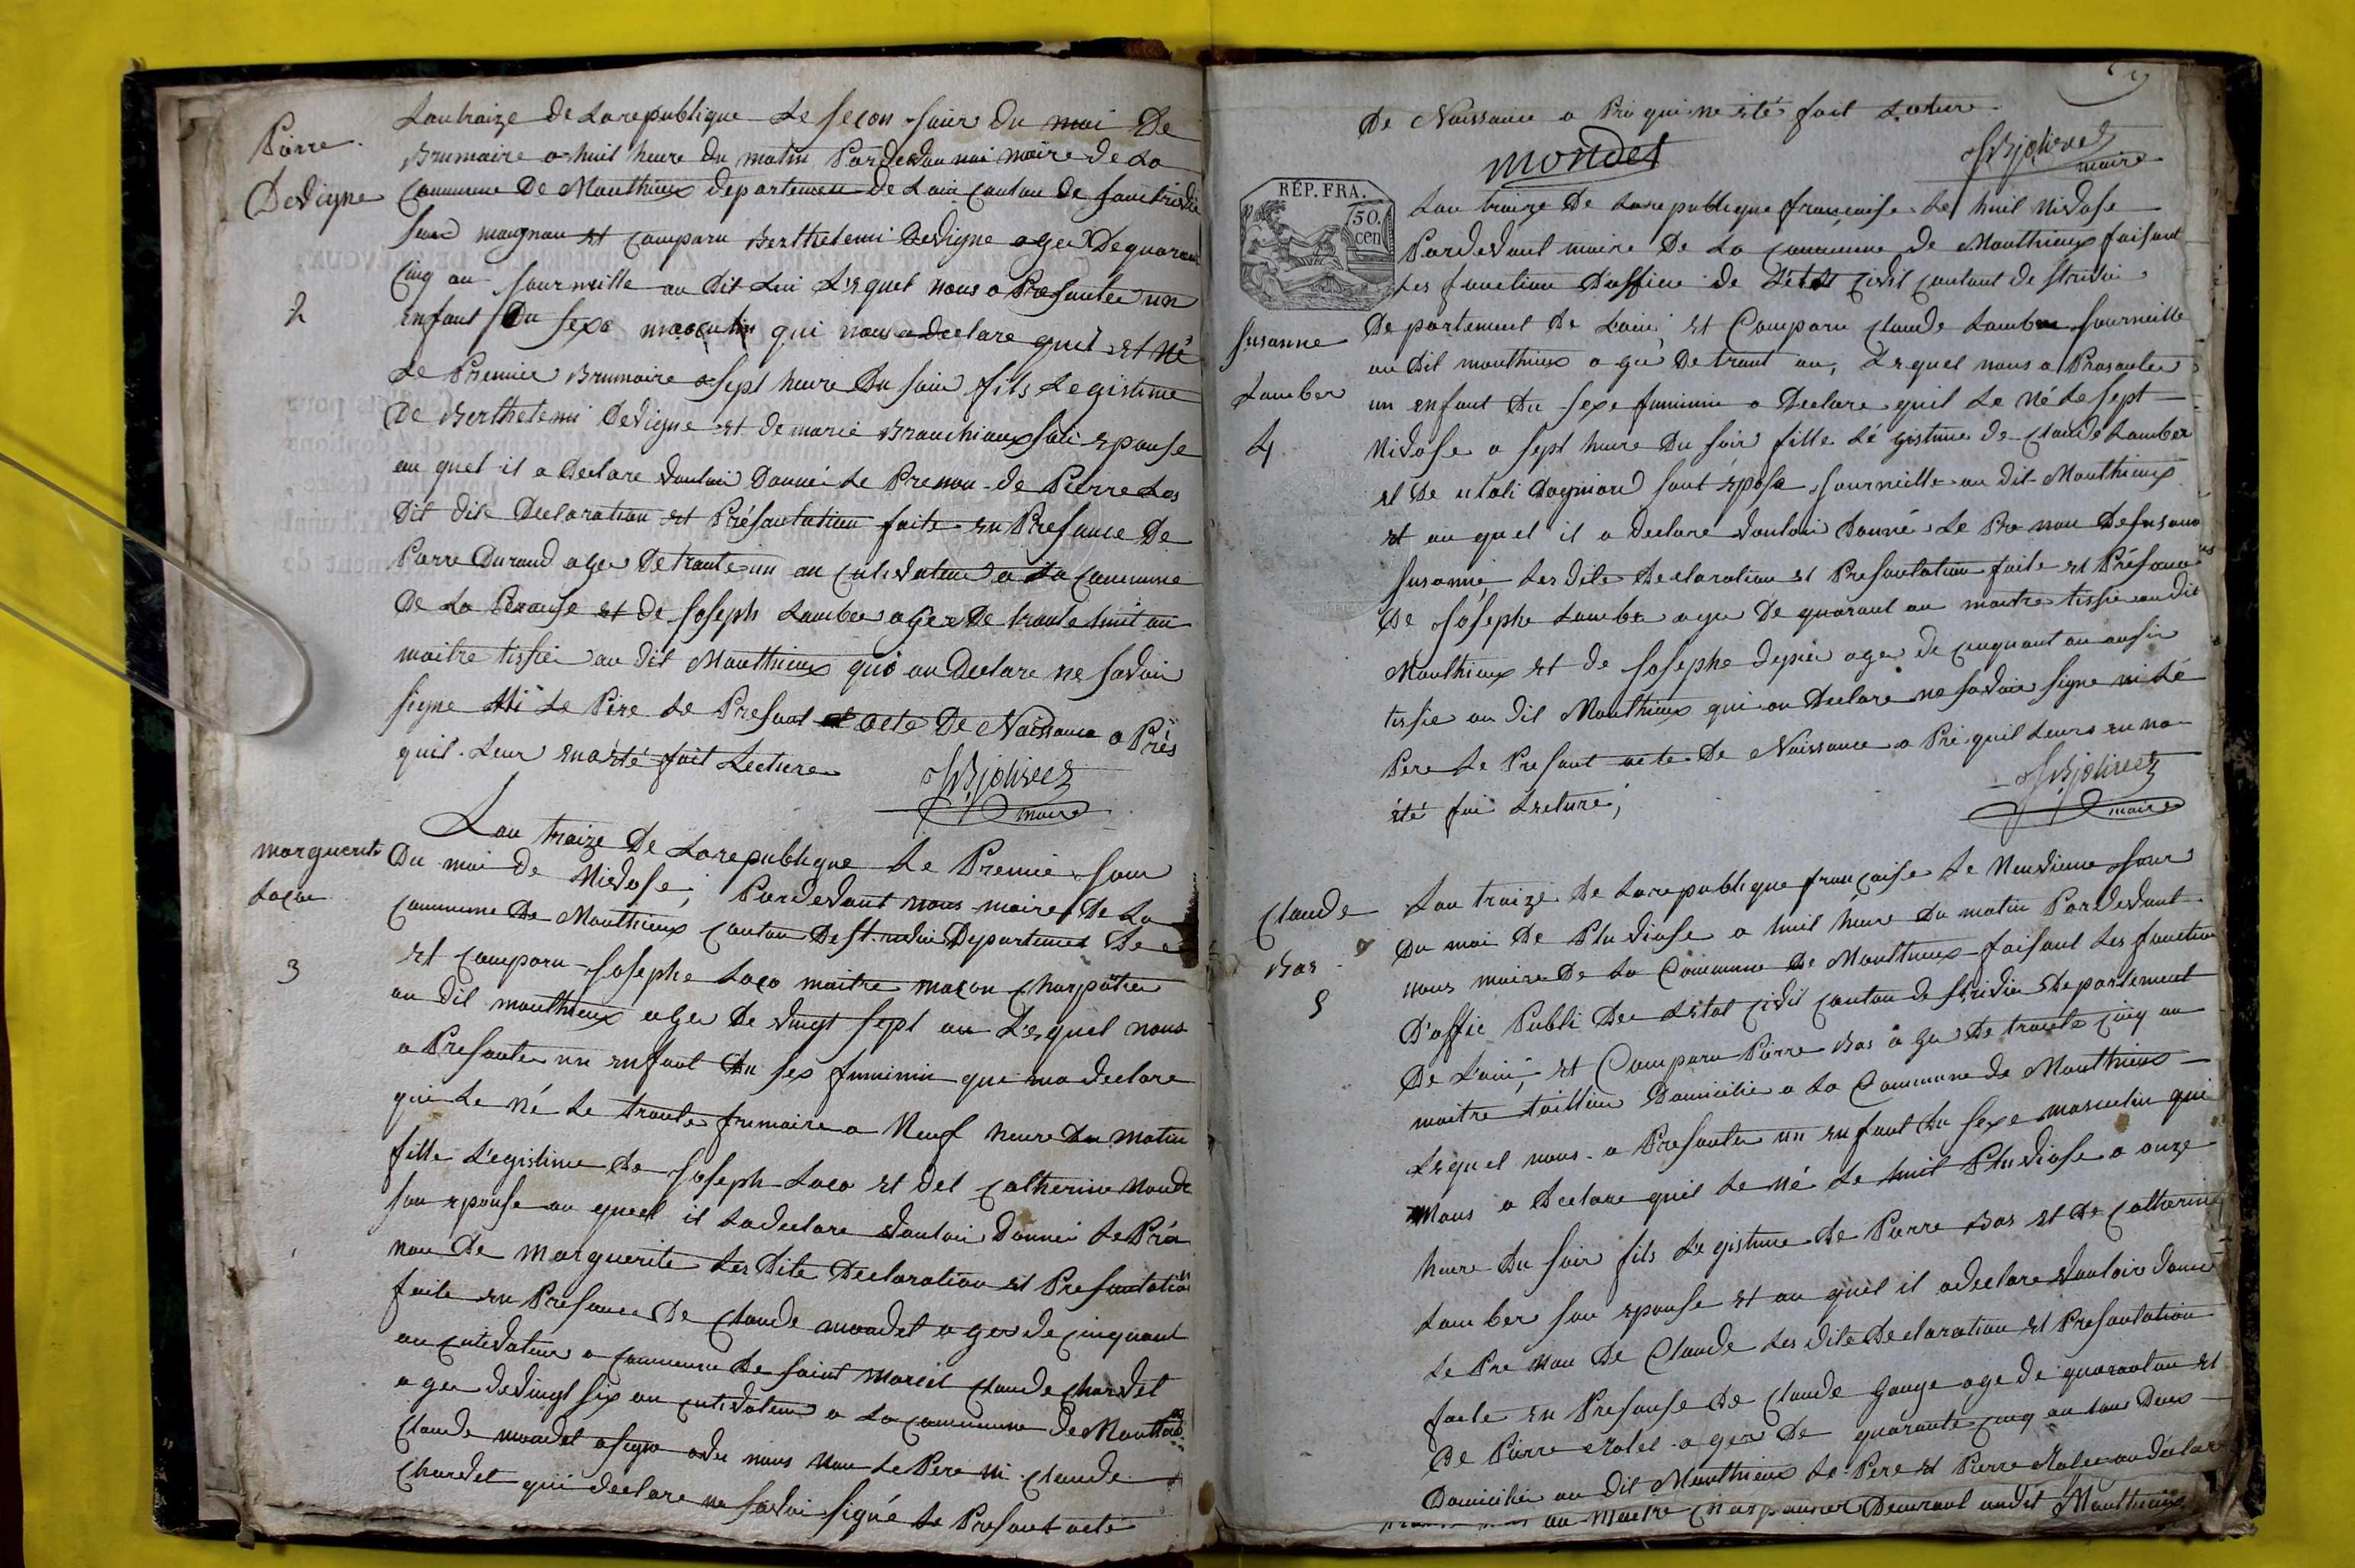 Pierre
Devigne
2
Lan traize de La republique Le secon jour du moi De
Brumaire a huil heure du matin Pardevan noi maire de La
Commune De Monthieux departemen de Lain canton de
et comparu Berthelemi Devigne agee De quaran
cinq an journeille au dit Lui Lequel nous a Presantee un
enfant Du sexe masculin qui nous a declare quil et né
Le Premier Brumaire a sept heure Du soir fils Legistime
De Berthelemi Devigne et de marie Branchiaux son epouse
au quel il a Declare vouloir Donné Le Prenon de Pierre Les
Dit dite Declaration et Présantation faite en Presance De
Pierre Durand agee De trante un an cultivateur a La Commune
De La Perouse et de Joseph Lamber agee De trante huit an
maitre tissier au dit Monthieux qui on Declare ne savoir
signe Ni Le Père Le Presant acte De Naissance a Près
quil Leur en a été fait Lecture
JB jolivet
maire
marguerite
Laca
3
Lan traize De La republique Le Premie jour
Du moi de Nivose, Pardevant nous maire De La
Commune De Monthieux canton De st. Departemen De
et comparu Josephe Laca maitre maçon charpatier
au dit monthieux agee De vingt sept an Lequel nous
a Presantee un enfant Du sex feminin que ma declare
qui Le né Le trante frimaire a Neuf heure Du matin
fille Legistime De Joseph Laca et de Catherine
son epouse au quel il La declare vouloir Donnei Le Pré
non De Marguerite Les Dite Declaration et Presantation
faite en Presance De Claude mondet agee de cinquant
an cultivateur a commune De saint Marcel Claude Chardet
agee de vingt six an cultivateur a La commune De
Claude mondet a signe avec nous non Le Pere ni Claude
Chardet qui declare ne savoir signé Le Presant acte
De Naissance a Prè qui ne été fait Lecture
mondet
JB jolivet
maire
RÉP. FRA.
50
cen
Susanne
Lamber
4
Lan traize De La republique francaise Le huil Nivose
Pardevant maire De La commune de Monthieux faisant
Les fonction D'officier de L'état civil cantont de
Departement De Lain et Comparu Claude Lamber journeille
au Dit monthieux agé De trant an, Lequel nous a Presantee
un enfant Du sexe feminin a Declare quil Le né Le sept
Nivose a sept heure Du soir fille Légistime de Claude Lamber
et De son épose journeille au dit Monthieux
et au quel il a declare vouloir Donné Le Pre non De
Susanne, Les dite declaration et Presantation faite et Présance
De Josephe Lamber agee De quarant an maitre tissie au dit
Monthieux et de Josephe agee de cinquant an aussi
tissie au dit Monthieux qui on Declare ne savoir signe ni Le
Pere Le Presant acte De Naissance a Prè quil Leurs en na
été fai Lecture,
JB jolivet
maire
Claude
Bas
5
Lan traize De La republique francaise Le Neuvieme jour
Du moi De Pluviose a huil heure Du matin Pardevant
nous maire De La Commune De Monthieux faisant Les fonction
D'offic Publi De Létat civil canton de Departement
De Lain, et Comparu Pierre Bas agee De trante cinq an
maitre taillieur Domicilie a La Commune de Monthieux
Lequel nous a Presantee un enfant Du sexe masculin qui
Nous a Declare quil Le né Le huit Pluviose a onze
heure Du soir fils Legistime De Pierre Bas et De Catherine
Lamber son epouse et au quel il a declare vouloir donne
Le Pre Non De Claude Les dite Declaration et Presantation
faite en Presanse De Claude Gouge age de quarantan et
De Pierre agee De quarante cinq an tous Deux
Domicilie au dit Monthieux Le Pere et Pierre on déclare
an Maitre Charpantier Demeurant audit Monthieux